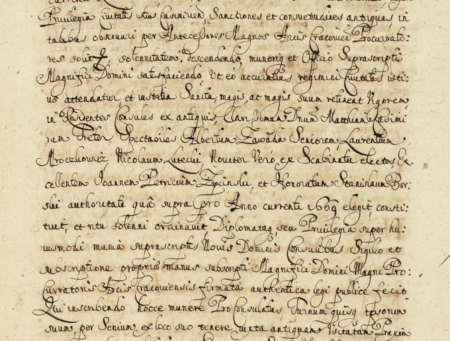 Privilegia Civitatis istius Casimiriae Sanctiones et consvetudines antiquas in
talibus observari per Antecessores Magnos Arcis Cracovien Procurato
res solit solennitatem, descendendo, muneriq et Officio Suprascripti
Magnifici Domini satisfaciendo Et eo accuratius regimini Civitatis isti
us attendatur et iustitia Sancta, magis ac magis suum retineat Vigorem
in Consules ex antiquis
Spectabiles Albertum Zawada Seniorem Laurentium
Mroczkowicz Nicolaum Noviter Vero, ex Scabinatu electos Ex
cellentem Joannem Petricium et Honoratum Stanislaum Bor
authoritate qua supra pro Anno currenti 1669 elegit consti
tuit, et ritu solenni ordinavit Diplomatq seu Privilegia super hu
iusmodi munia suprascriptis Novis Dominis Consulibus Sigillo et
subscriptione propriis manus subscripti Magnifici Domini Magni Pro
curatoris Arcis Cracoviensis firmata authentica legi publice fecit
Qui inscribendo hocce munere Pro Consulatus Turnum quisq ipsorum
suum, per Senium, ex loco suo tenere iuxta antiquam